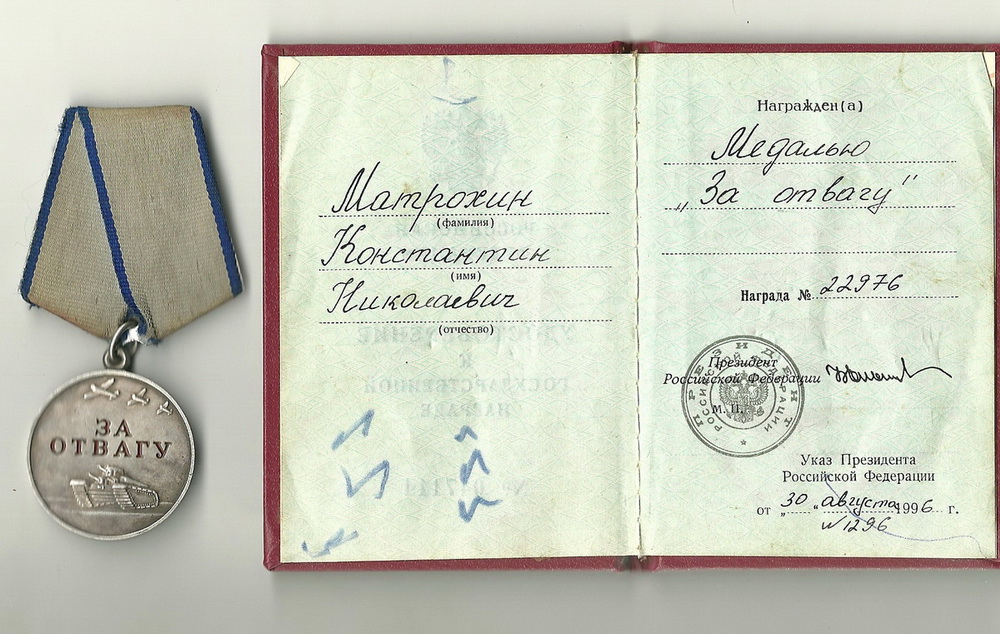 ЗА
ОТВАГУ
Матрохин
(фамилия)
Константин
(имя)
Николаевич
(отчество)
Награжден(а)
Медалью
„За отвагу"
Награда № 22976
Президент
Российской Федерации
М. П.
ПРЕЗИДЕНТ
РОССИЙСКОЙ ФЕДЕРАЦИИ
Указ Президента
Российской Федерации
от „30" августа 1996 г.
N 1296